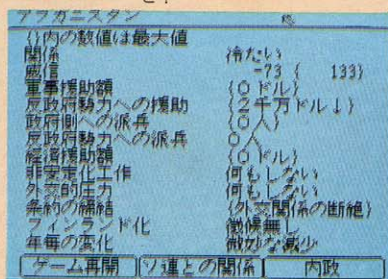 アフガニスタン
()内の数値は最大値
関係 (冷たい)
威信 -73 ( 133)
軍事援助額 (0ドル)
反政府勢力への援助 (2千万ドル↓)
政府側への派兵 (0人)
反政府勢力への派兵 0人
経済援助額 (0ドル)
非安定化工作 何もしない
外交的圧力 何もしない
条約の締結 (外交関係の断絶)
フィンランド化 徴候無し
年毎の変化 微妙な減少
ゲーム再開 ソ連との関係 内政